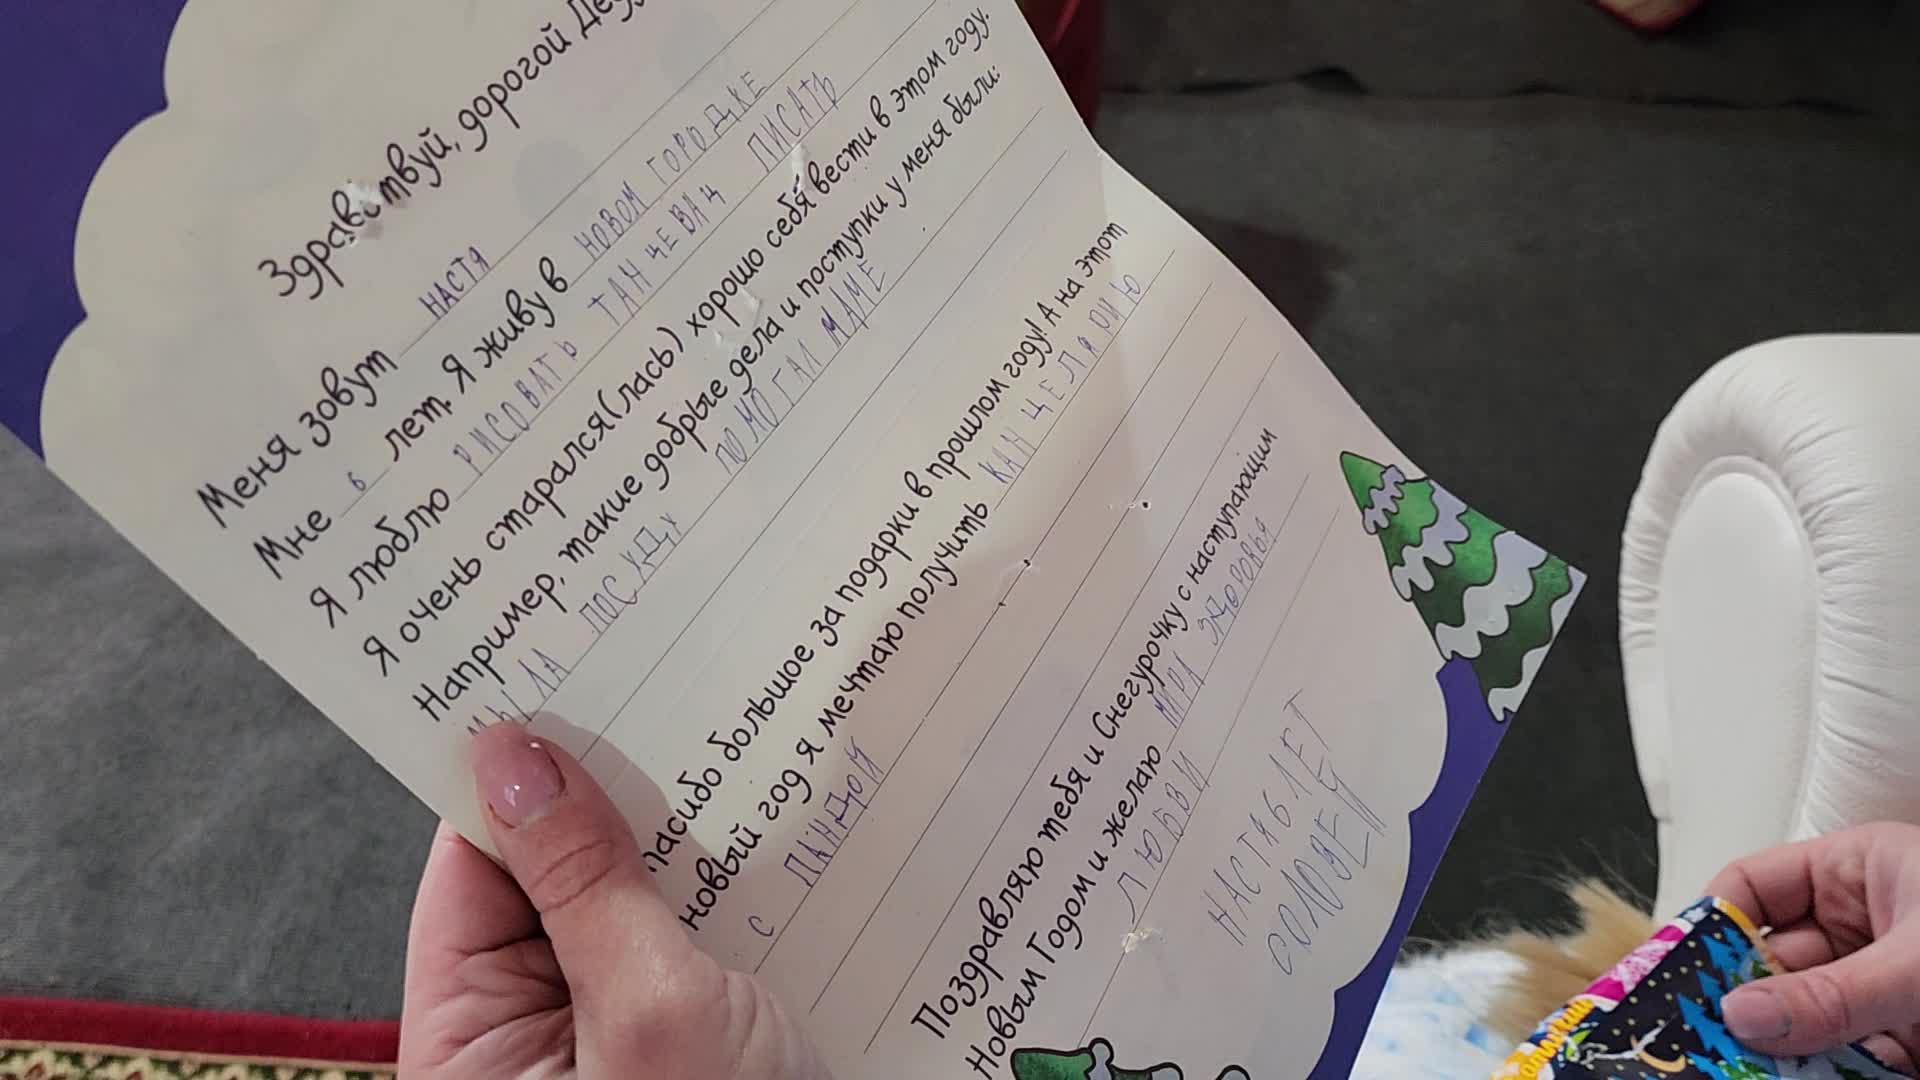 Здравствуй, дорогой
Меня зовут НАСТЯ
Мне 6 лет. Я живу в НОВОМ ГОРОДКЕ
Я люблю РИСОВАТЬ ТАНЦЕВАЦ ПИСАТЬ
Я очень старался(лась) хорошо себя вести в этом году.
Например, такие добрые дела и поступки у меня были:
МЫЛА ПОСУДУ ПОМОГАЛ МАМЕ
пасибо большое за подарки в прошлом году! А на этот
новый год я мечтаю получить КАНЦЕЛЯРИЮ
С ПАНДОЙ
Поздравляю тебя и Снегурочку с наступающим
Новым Годом и желаю МИРА ЗДОРОВЬЯ
ЛЮБВИ
НАСТЯ 6 ЛЕТ
СОЛОВЕЙ